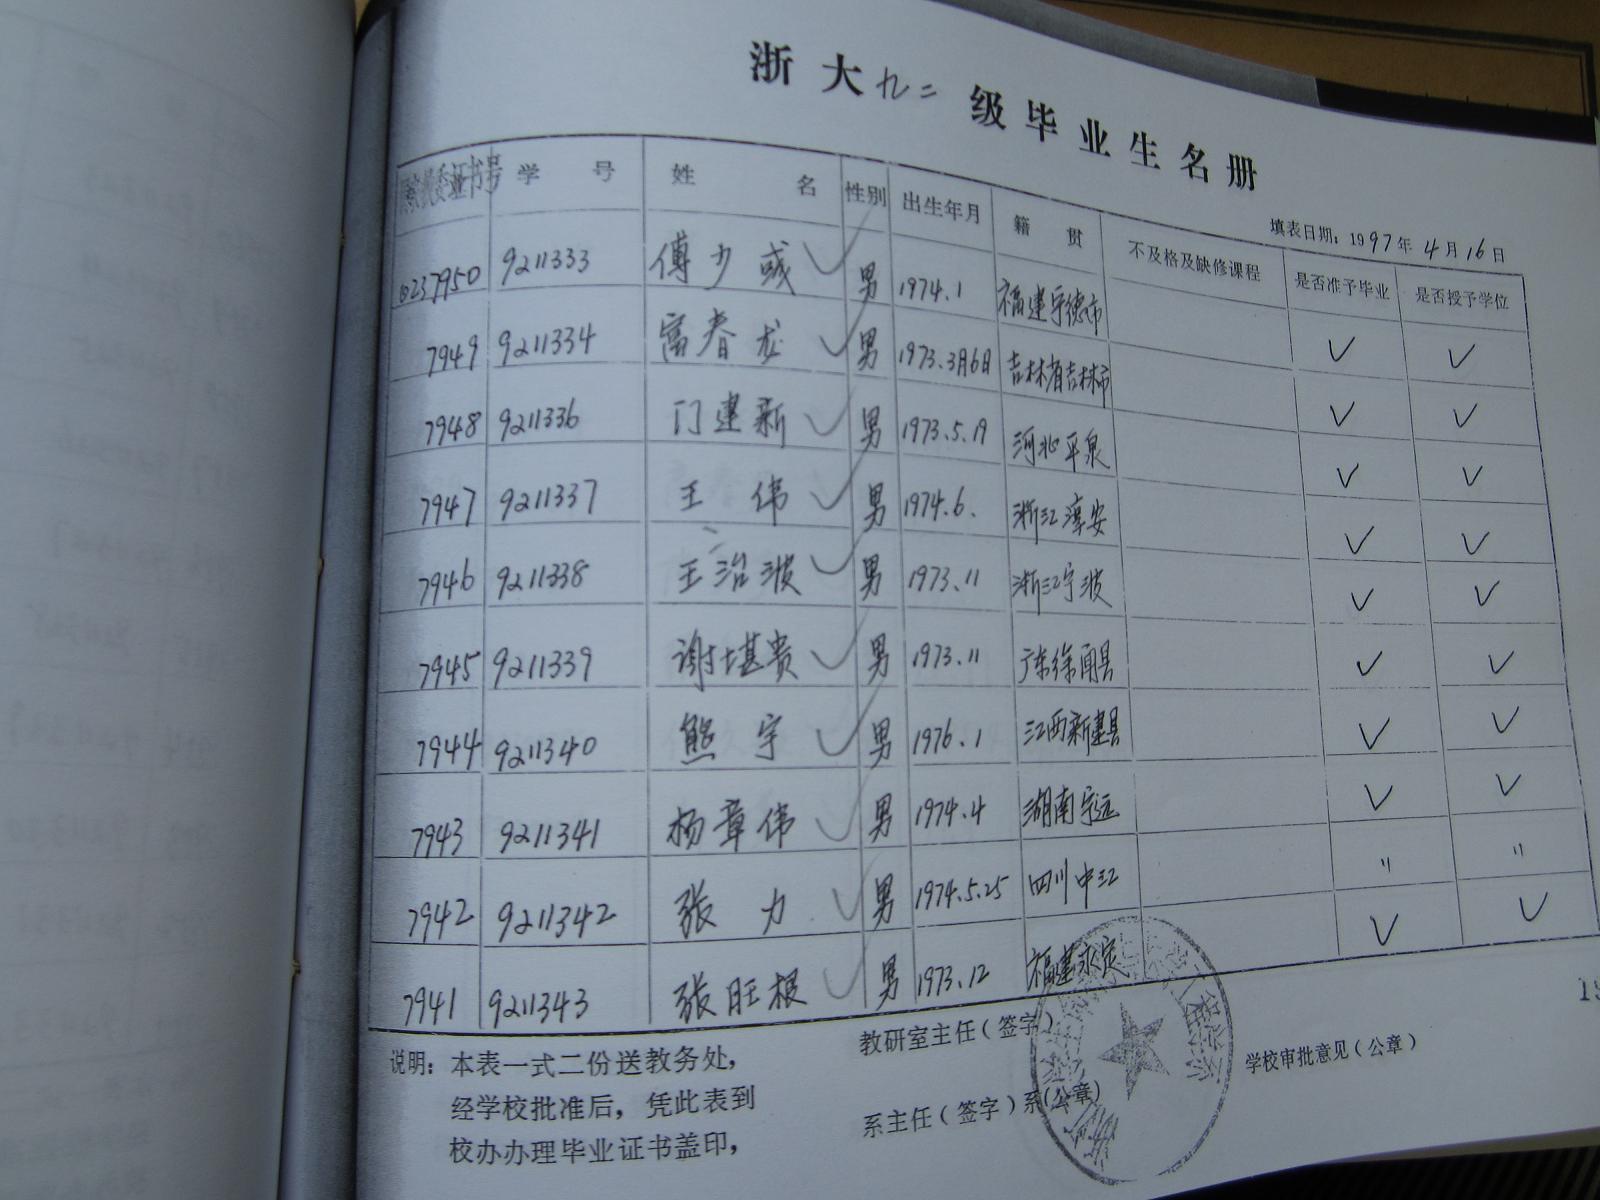 浙大九二级毕业生名册
填表日期：1997年4月16日
国家教委证书号 学号 姓名 性别 出生年月 籍贯 不及格及缺修课程 是否准予毕业 是否授予学位
10237950 9211333 傅少彧 ✓ 男 1974.1 福建宁德市 ✓ ✓
7949 9211334 富春龙 ✓ 男 1973.3月6日 吉林省吉林市 ✓ ✓
7948 9211336 门建新 ✓ 男 1973.5.19 河北平泉 ✓ ✓
7947 9211337 王伟 ✓ 男 1974.6. 浙江淳安 ✓ ✓
7946 9211338 王治波 ✓ 男 1973.11 浙江宁波 ✓ ✓
7945 9211339 谢堪贵 ✓ 男 1973.11 广东徐闻县 ✓ ✓
7944 9211340 熊宇 ✓ 男 1976.1 江西新建县 ✓ ✓
7943 9211341 杨章伟 ✓ 男 1974.4 湖南宁远 ✓ ✓
7942 9211342 张力 ✓ 男 1974.5.25 四川中江 〃 〃
7941 9211343 张旺根 ✓ 男 1973.12 福建永定 ✓ ✓
说明：本表一式二份送教务处，
经学校批准后，凭此表到
校办办理毕业证书盖印，
教研室主任（签字）
系主任（签字）系（公章）
学校审批意见（公章）